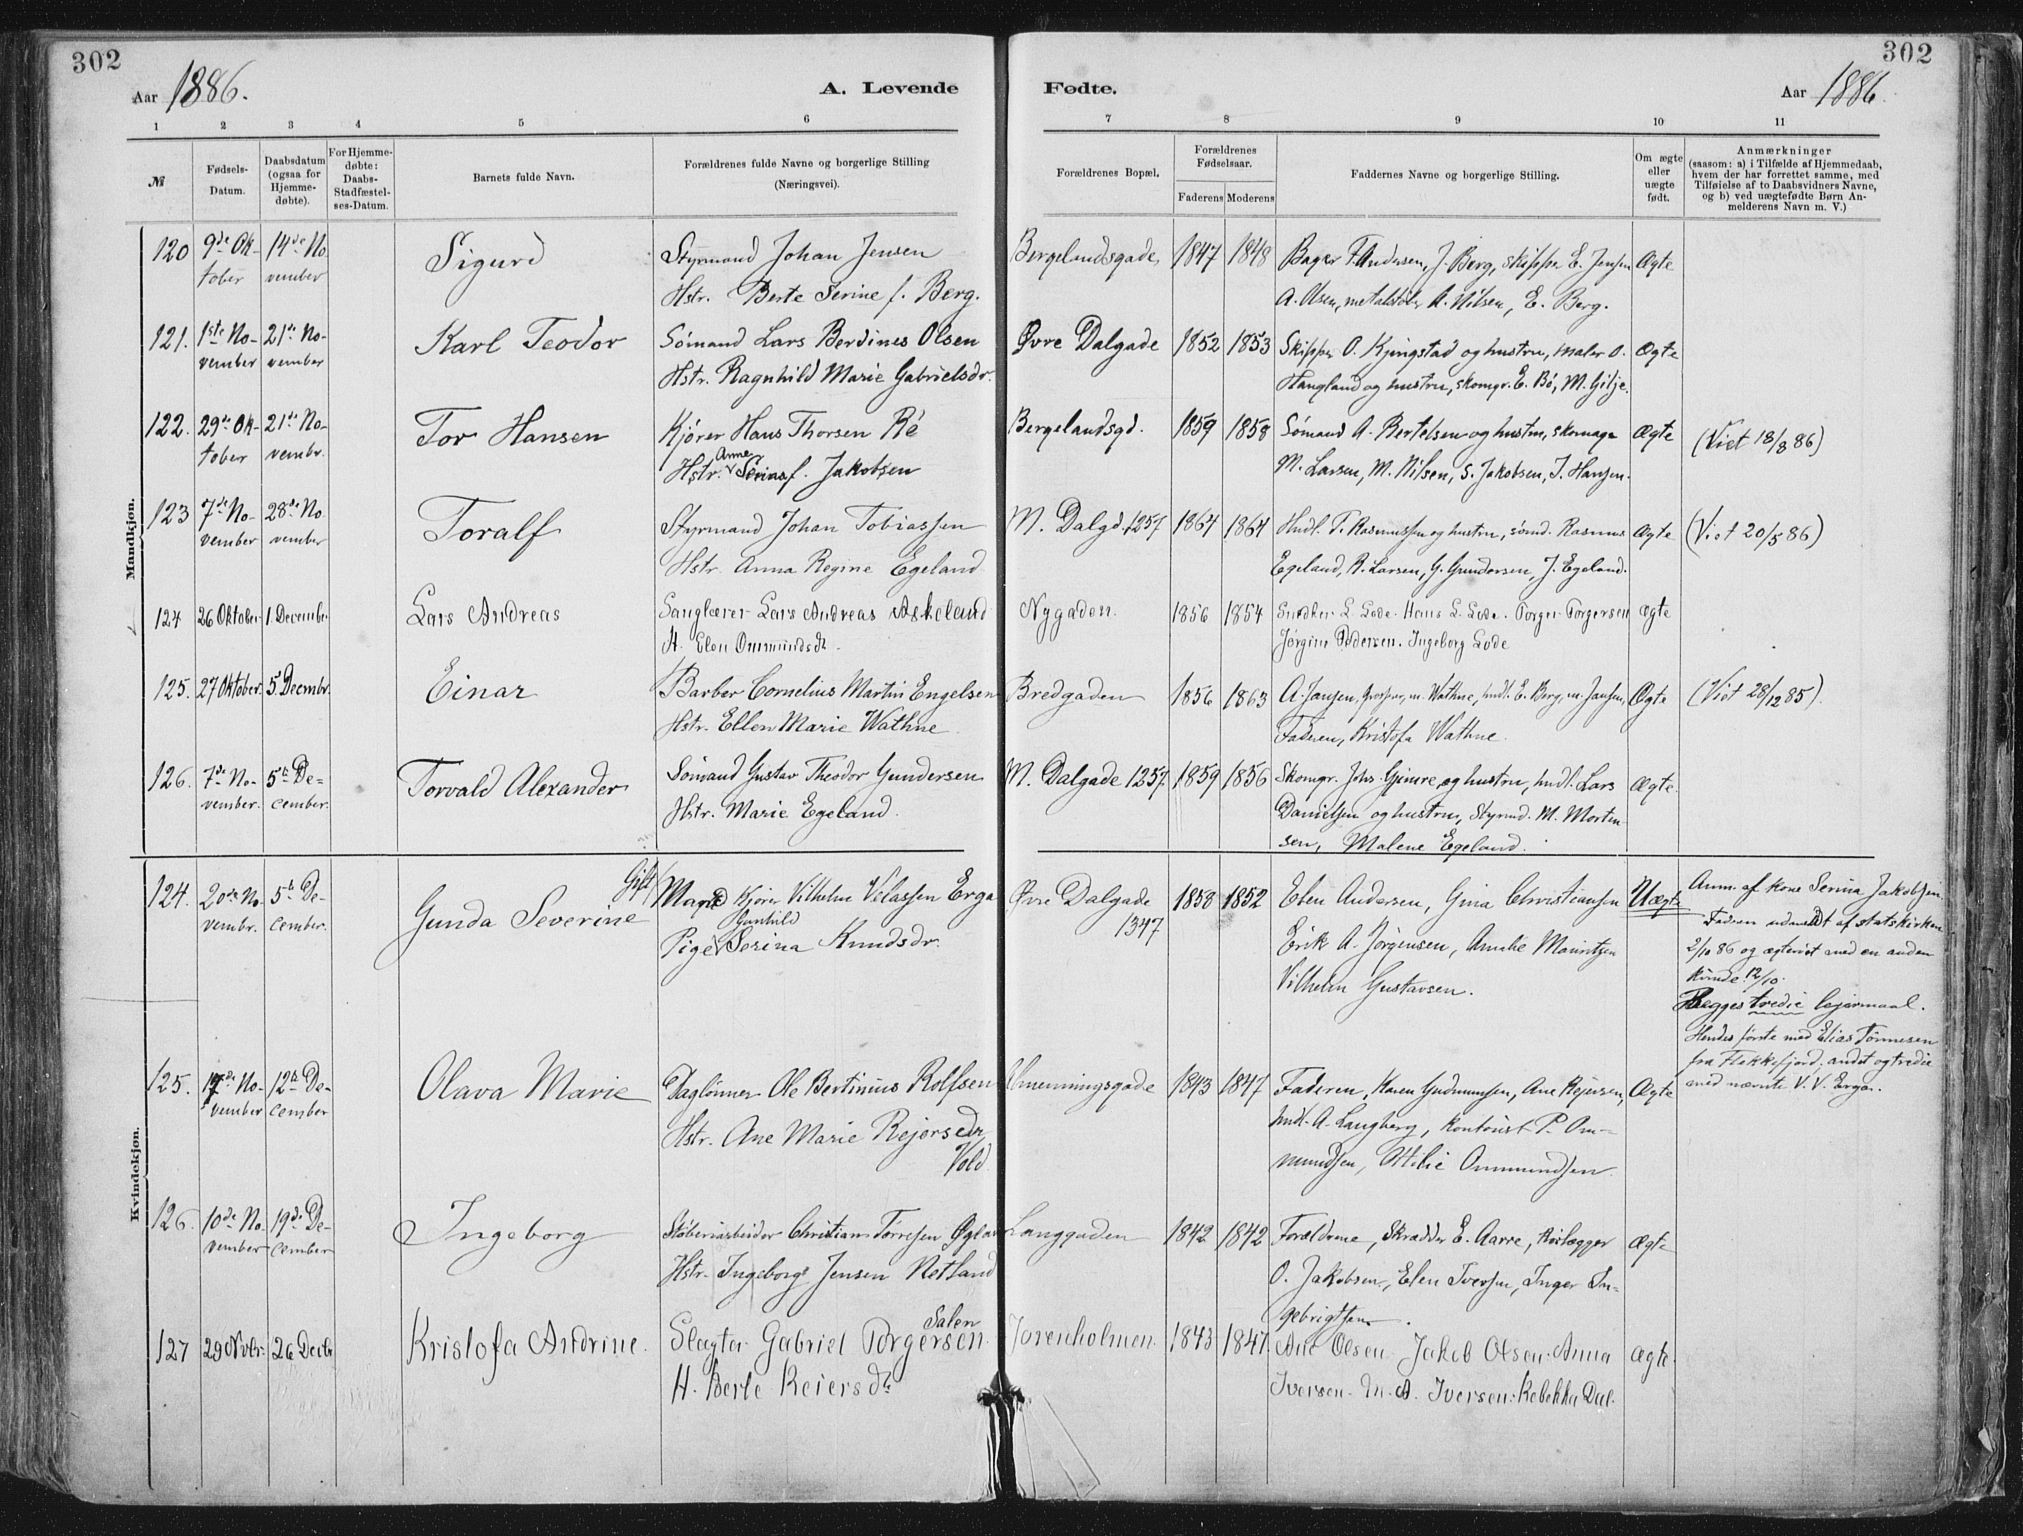 302
302
Aar 1886.
A. Levende Fødte.
Aar 1886.
1 2 3 4 5 6 7 8 9 10 11
№
Fødsels-
Datum.
Daabsdatum
(ogsaa for
Hjemme-
døbte).
For Hjemme-
døbte:
Daabs-
Stadfæstel-
ses-Datum.
Barnets fulde Navn.
Forældrenes fulde Navne og borgerlige Stilling
(Næringsvei).
Forældrenes Bopæl.
Forældrenes
Fødselsaar.
Faderens Moderens
Faddernes Navne og borgerlige Stilling.
Om ægte
eller
uægte
født.
Anmærkninger
(saasom: a) i Tilfælde af Hjemmedaab,
hvem der har forrettet samme, med
Tilføielse af to Daabsvidners Navne,
og b) ved uægtefødte Børn An-
melderens Navn m. V.)
Mandkjøn.
120 9de Ok- 14de No Sigurd Styrmand Johan Jensen Bergelandsgade 1847 1848 Bager F. Andersen, J. Berg, skipper E. Jensen Ægte
tober vember Hstr. Berte Serine f. Berg. A. Olsen, metalstøber A. Nilsen, E. Berg.
121. 1ste No- 21de No- Karl Teodor Sømand Lars Berdines Olsen Øvre Dalgade 1852 1853 Skipper O. Kjingstad og hustru, maler O. Ægte
vember vember Hstr. Ragnhild Marie Gabrielsdr. Haugland og hustru, skomgr. E. Bø, M. Gilje.
122. 29de Ok- 21de No- Tor Hansen Kjører Hans Thorsen Ré Bergelandsgd. 1859 1858 Sømand A. Bertelsen og hustru, skomager Ægte (Viet 18/8 86)
tober vembr. Hstr. Anne Serina f. Jakobsen M. Larsen, M. Nilsen, S. Jakobsen, T. Hansen.
123 7de No- 28de No Toralf Styrmand Johan Tobiassen M. Dalgd. 1257 1864 1864 Hndl. T. Rasmussen og hustru, sømd. Rasmus Ægte (Viet 20/5 86)
vember vember Hstr. Anna Regine Egeland Egeland, R. Larsen, G. Gundersen, J. Egeland.
124 26 Oktober 1. December Lars Andreas Sanglærer Lars Andreas Askeland Nygaden. 1856 1854 Snedker L. Lode. Hans L. Lode. Torger Torgersen Ægte
H. Elen Ommundsdt. Jørgine Pedersen. Ingeborg Lode
125. 27 Oktober. 5. Decembr. Einar Barber Cornelius Martin Engelsen Bredgaden 1856 1863 A. Jansen, m. Wathne, hndl. E. Berg, m. Jansen, Ægte (Viet 28/12 85).
Hstr. Ellen Marie Wathne. Faderen, Kristofa Wathne.
126. 7de No- 5te De- Torvald Alexander Sømand Gustav Theodor Gundersen M. Dalgade 1257. 1859 1856 Skomgr. Johs. Gimre og hustru, hndl. Lars Ægte.
vember. cember. Hstr. Marie Egeland. Danielsen og hustru, Styrmd. M. Morten-
sen, Malene Egeland.
Kvindekjøn.
124. 20de No 5te De- Gunda Severine Gift Mand Kjører Vilhelm Velassen Erga Øvre Dalgade 1858 1852 Elen Andersen, Gina Christiansen Uægte Anm. af kone Serina Jakobsen.
vembr. cember. Pige Gunhild Serina Knudsdr. 1347 Erik A. Jørgensen, Amalie Mauritzen
Vilhelm Gustavsen.
Fadren udmeldt af statskirken
2/10 86 og ægteviet med en anden
kvinde 12/10.
Begges tredie leiermaal.
Hendes første med Elias Tønnesen
fra Flekkefjord, andet og tredie
med nævnte V. V. Erga.
125. 17de No- 12te De- Olava Marie Daglønner Ole Bertinius Rolfsen 1843 1847 Faderen, Karen Gudmunsen, Ane Rejersen, Ægte
vember cember Hstr. Ane Marie Rejersdr. Vold hndl. A. Langberg, kontorist P. Om-
mundsen, Otilie Ommundsen.
126. 10de No- 19de De- Ingeborg Støberiarbeider Christian Tørresen Langgaden 1842 1842 Forældrene, Skrædder E. Aarre, Ægte
vember cember Hstr. Ingeborg Jensen Netland O. Jakobsen, Elen Iversen, Inger In-
gebrigtsen.
127 29 Novbr. 26 Decbr Kristofa Andrine. Slagter Gabriel Torgersen Salen Jorenholmen. 1843 1847 Ane Olsen Jakob Olsen. Anna Ægte.
H. Berte Reiersdt. Iversen. M. A. Iversen. Rebekka Dal.